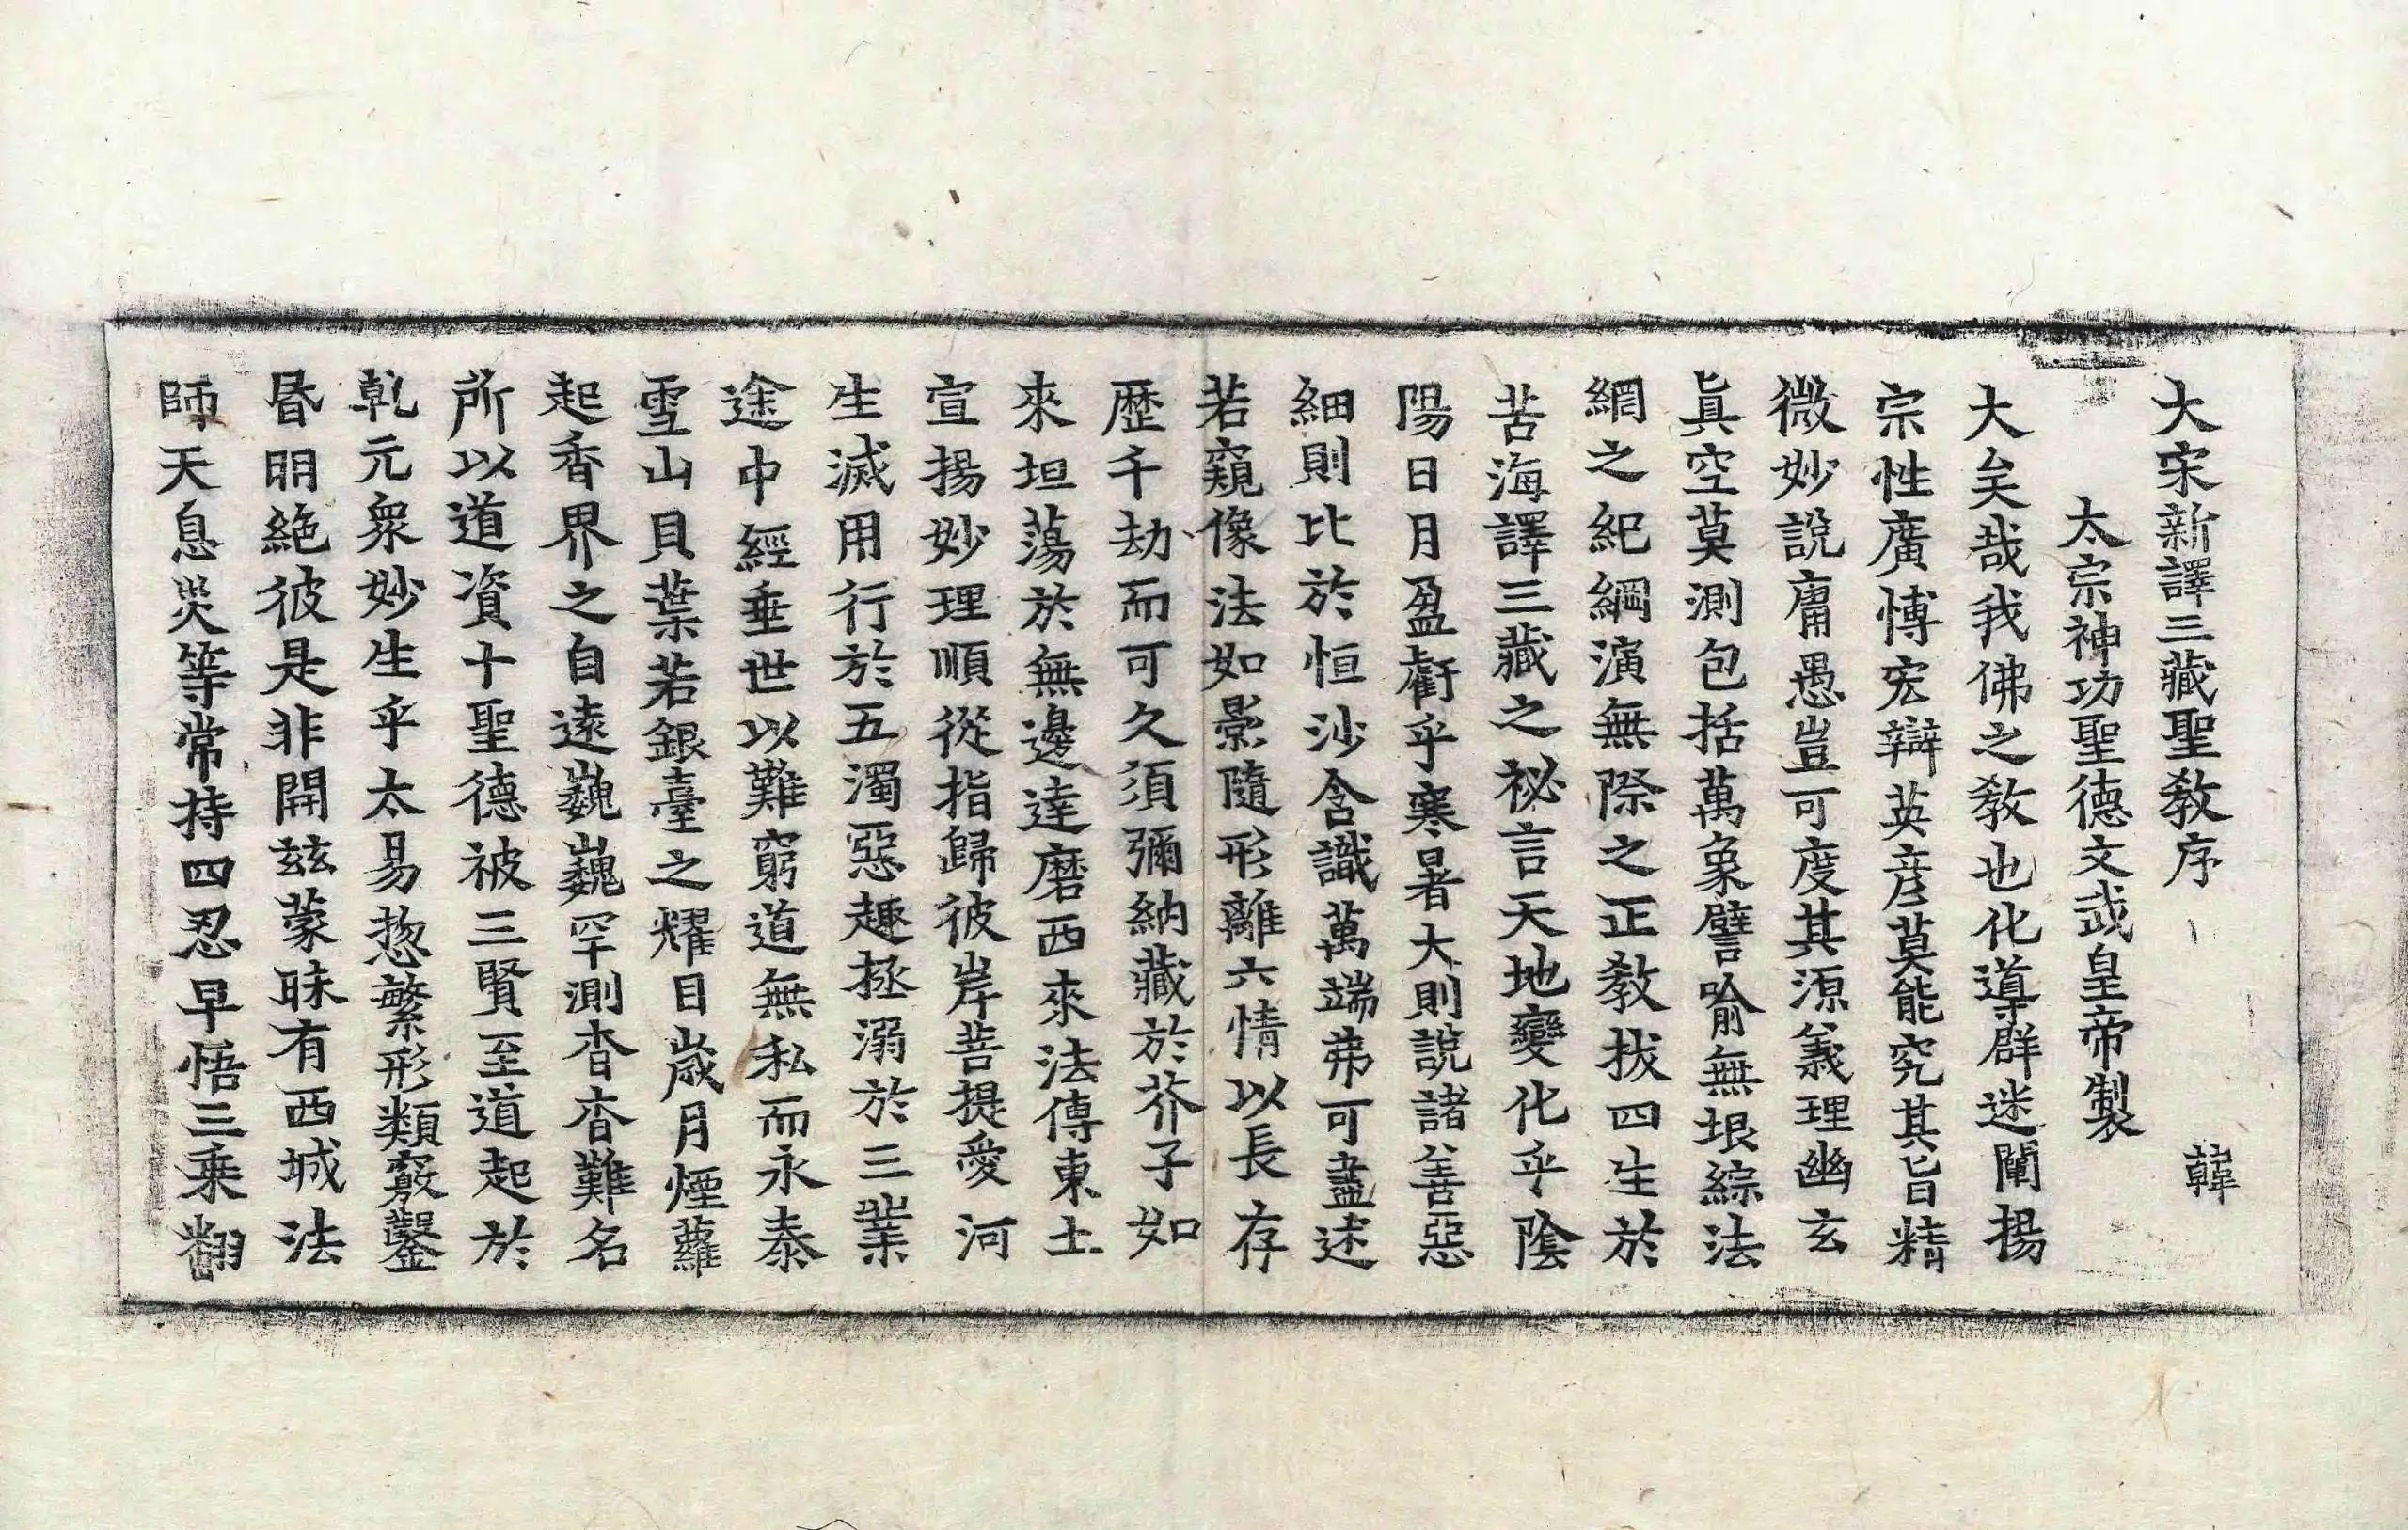 大宋新譯三藏聖教序　韓
太宗神功聖德文武皇帝製
大矣哉我佛之教也化導群迷闡揚
宗性廣博宏辯英彦莫能究其旨精
微妙說庸愚豈可度其源義理幽玄
眞空莫測包括萬象譬喻無垠綜法
網之紀綱演無際之正教拔四生於
苦海譯三藏之祕言天地變化乎陰
陽日月盈虧乎寒暑大則說諸善惡
細則比於恒沙含識萬端弗可盡述
若窺像法如影隨形離六情以長存
歷千劫而可久須彌納藏於芥子如
來坦蕩於無邊達磨西來法傳東土
宣揚妙理順從指歸彼岸菩提愛河
生滅用行於五濁惡趣拯溺於三業
途中經垂世以難窮道無私而永泰
雪山貝葉若銀臺之耀目歲月煙蘿
起香界之自遠巍巍罕測杳杳難名
所以道資十聖德被三賢至道起於
乹元衆妙生乎太易惣繁形類竅鑿
昬明絶彼是非開茲蒙昧有西城法
師天息災等常持四忍早悟三乗翻